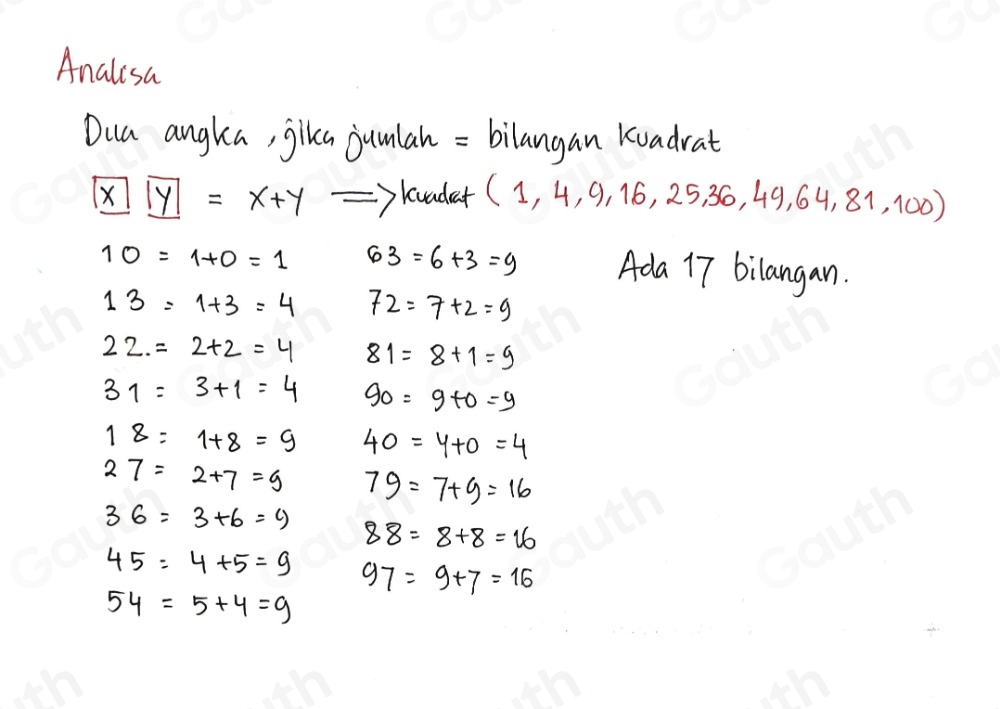 Analisa
Dua angka, jika jumlah = bilangan kuadrat
X Y = X+Y => kuadrat (1, 4, 9, 16, 25, 36, 49, 64, 81, 100)
10 = 1+0 = 1
13 = 1+3 = 4
22. = 2+2 = 4
31 = 3+1 = 4
18 = 1+8 = 9
27 = 2+7 = 9
36 = 3+6 = 9
45 = 4+5 = 9
54 = 5+4 = 9
63 = 6+3 = 9
72 = 7+2 = 9
81 = 8+1 = 9
90 = 9+0 = 9
40 = 4+0 = 4
79 = 7+9 = 16
88 = 8+8 = 16
97 = 9+7 = 16
Ada 17 bilangan.
Gauth